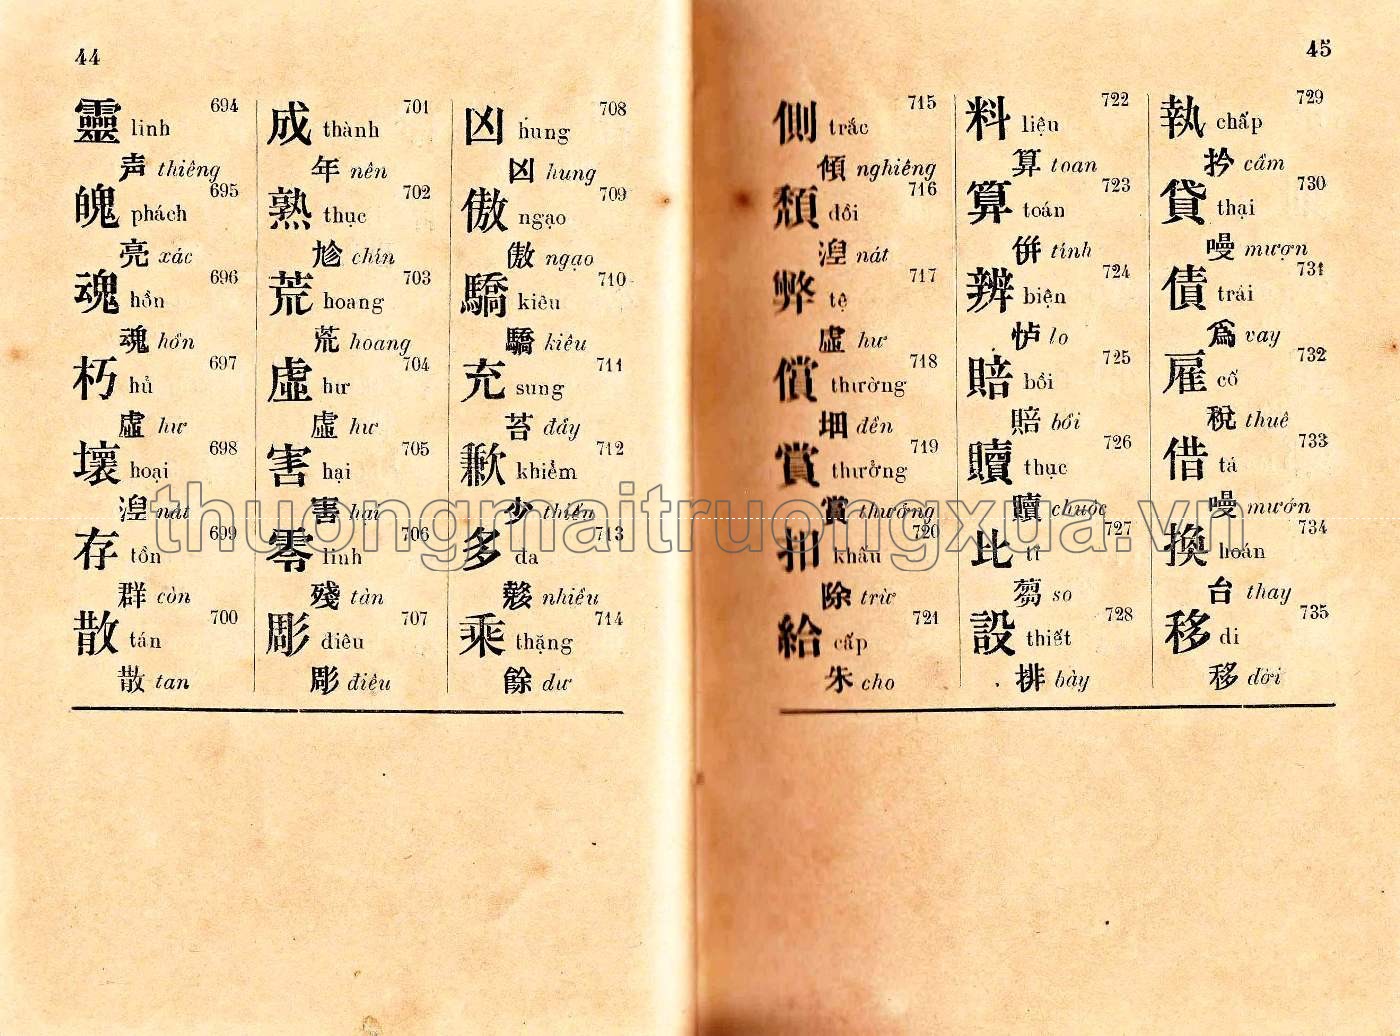 44
靈 linh 694
声 thiêng
魄 phách 695
亮 xác
魂 hồn 696
魂 hồn
朽 hủ 697
虛 hư
壞 hoại 698
湼 nát
存 tồn 699
群 còn
散 tán 700
散 tan
成 thành 701
年 nên
熟 thục 702
chín
荒 hoang 703
荒 hoang
虛 hư 704
虛 hư
害 hại 705
害 hại
零 linh 706
殘 tàn
彫 điêu 707
彫 điêu
凶 hung 708
凶 hung
傲 ngạo 709
傲 ngạo
驕 kiêu 710
驕 kiêu
充 sung 711
苔 đầy
歉 khiểm 712
少 thiểu
多 đa 713
nhiều
乘 thặng 714
餘 dư
45
側 trắc 715
傾 nghiêng
頹 đồi 716
湼 nát
弊 tệ 717
虛 hư
償 thường 718
畑 đền
賞 thưởng 719
賞 thưởng
扣 khấu 720
除 trừ
給 cấp 721
朱 cho
料 liệu 722
算 toan
算 toán 723
併 tính
辨 biện 724
lo
賠 bồi 725
賠 bồi
贖 thục 726
贖 chuộc
比 tỉ 727
芻 so
設 thiết 728
排 bày
執 chấp 729
扲 cầm
貸 thại 730
嘪 mượn
債 trái 731
爲 vay
雇 cố 732
稅 thuê
借 tá 733
mướn
換 hoán 734
台 thay
移 di 735
移 dời
thuongmaitruongxua.vn